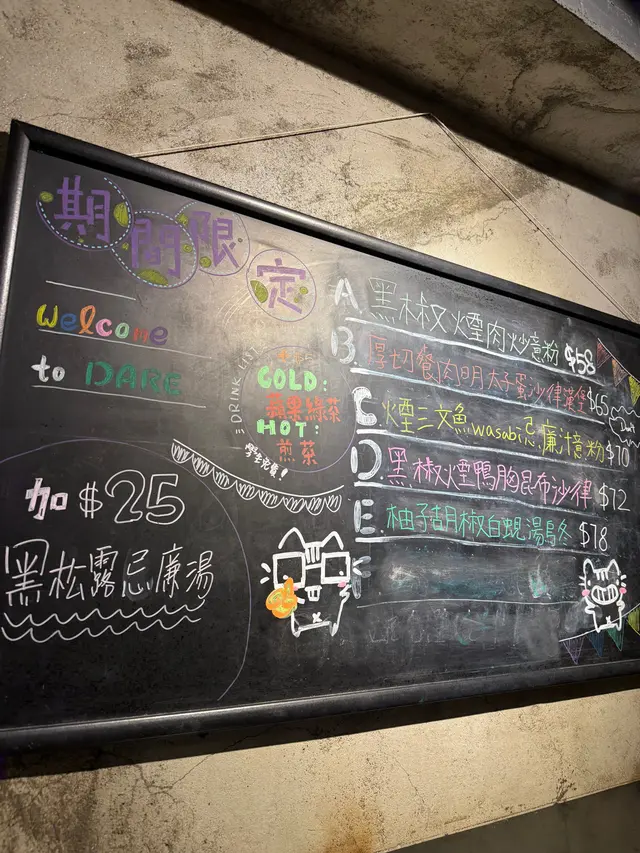 期間限定
Welcome
to DARE
DRINK
COLD:
蘋果綠茶
HOT:
煎茶
學生免費!
加 $25
黑松露忌廉湯
A 黑椒煙肉炒意粉 $58
B 厚切餐肉明太子蛋沙律漢堡 $65
C 煙三文魚wasabi忌廉汁意粉 $70
D 黑椒煙鴨胸昆布沙律 $72
E 柚子胡椒白蜆湯烏冬 $78
F